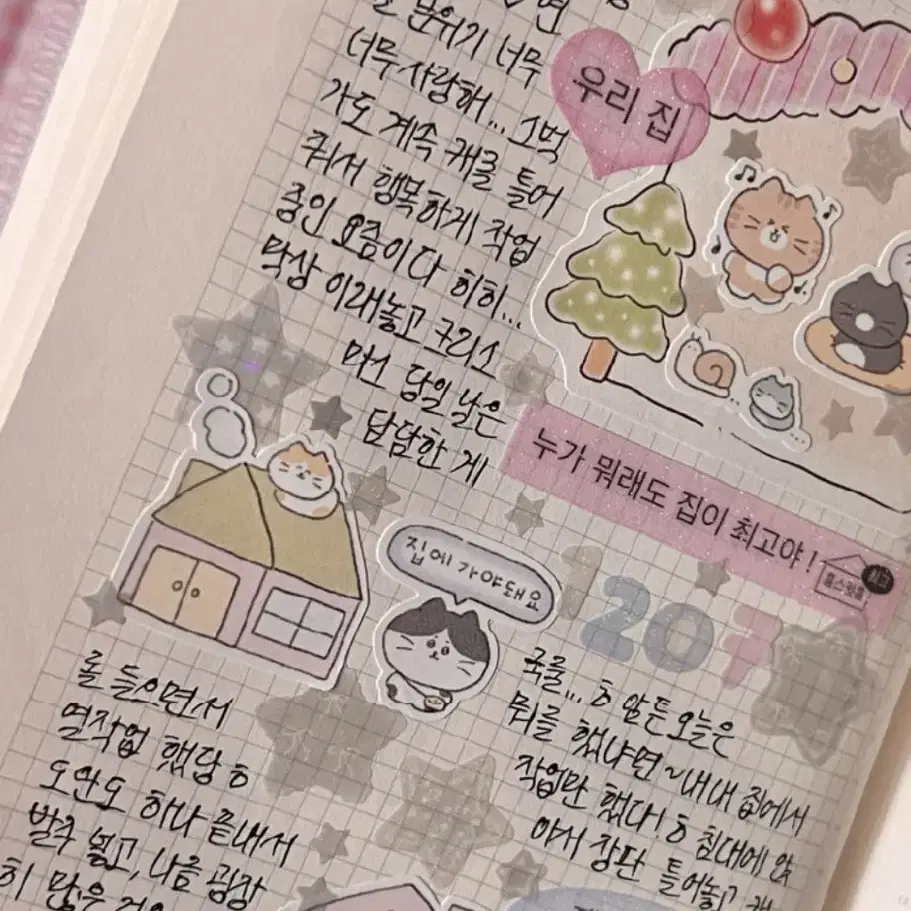 분위기 너무
너무 사랑해... 스벅
가도 계속 캐롤 틀어
줘서 행복하게 작업
중인 요즘이다 히히...
막상 이래놓고 크리스
마스 당일 날은
담담한 게
우리 집
누가 뭐래도 집이 최고야!
홈스윗홈
집에 가야돼요
1207
국룰... ㅎ 암튼 오늘은
뭐를 했냐면~내내 집에서
작업만 했다! ㅎ 침대에 앉
아서 장판 틀어놓고 캐
롤 들으면서
열작업 했당 ㅎ
도안도 하나 끝내서
발주 넣고, 나름 굉장
히 많은